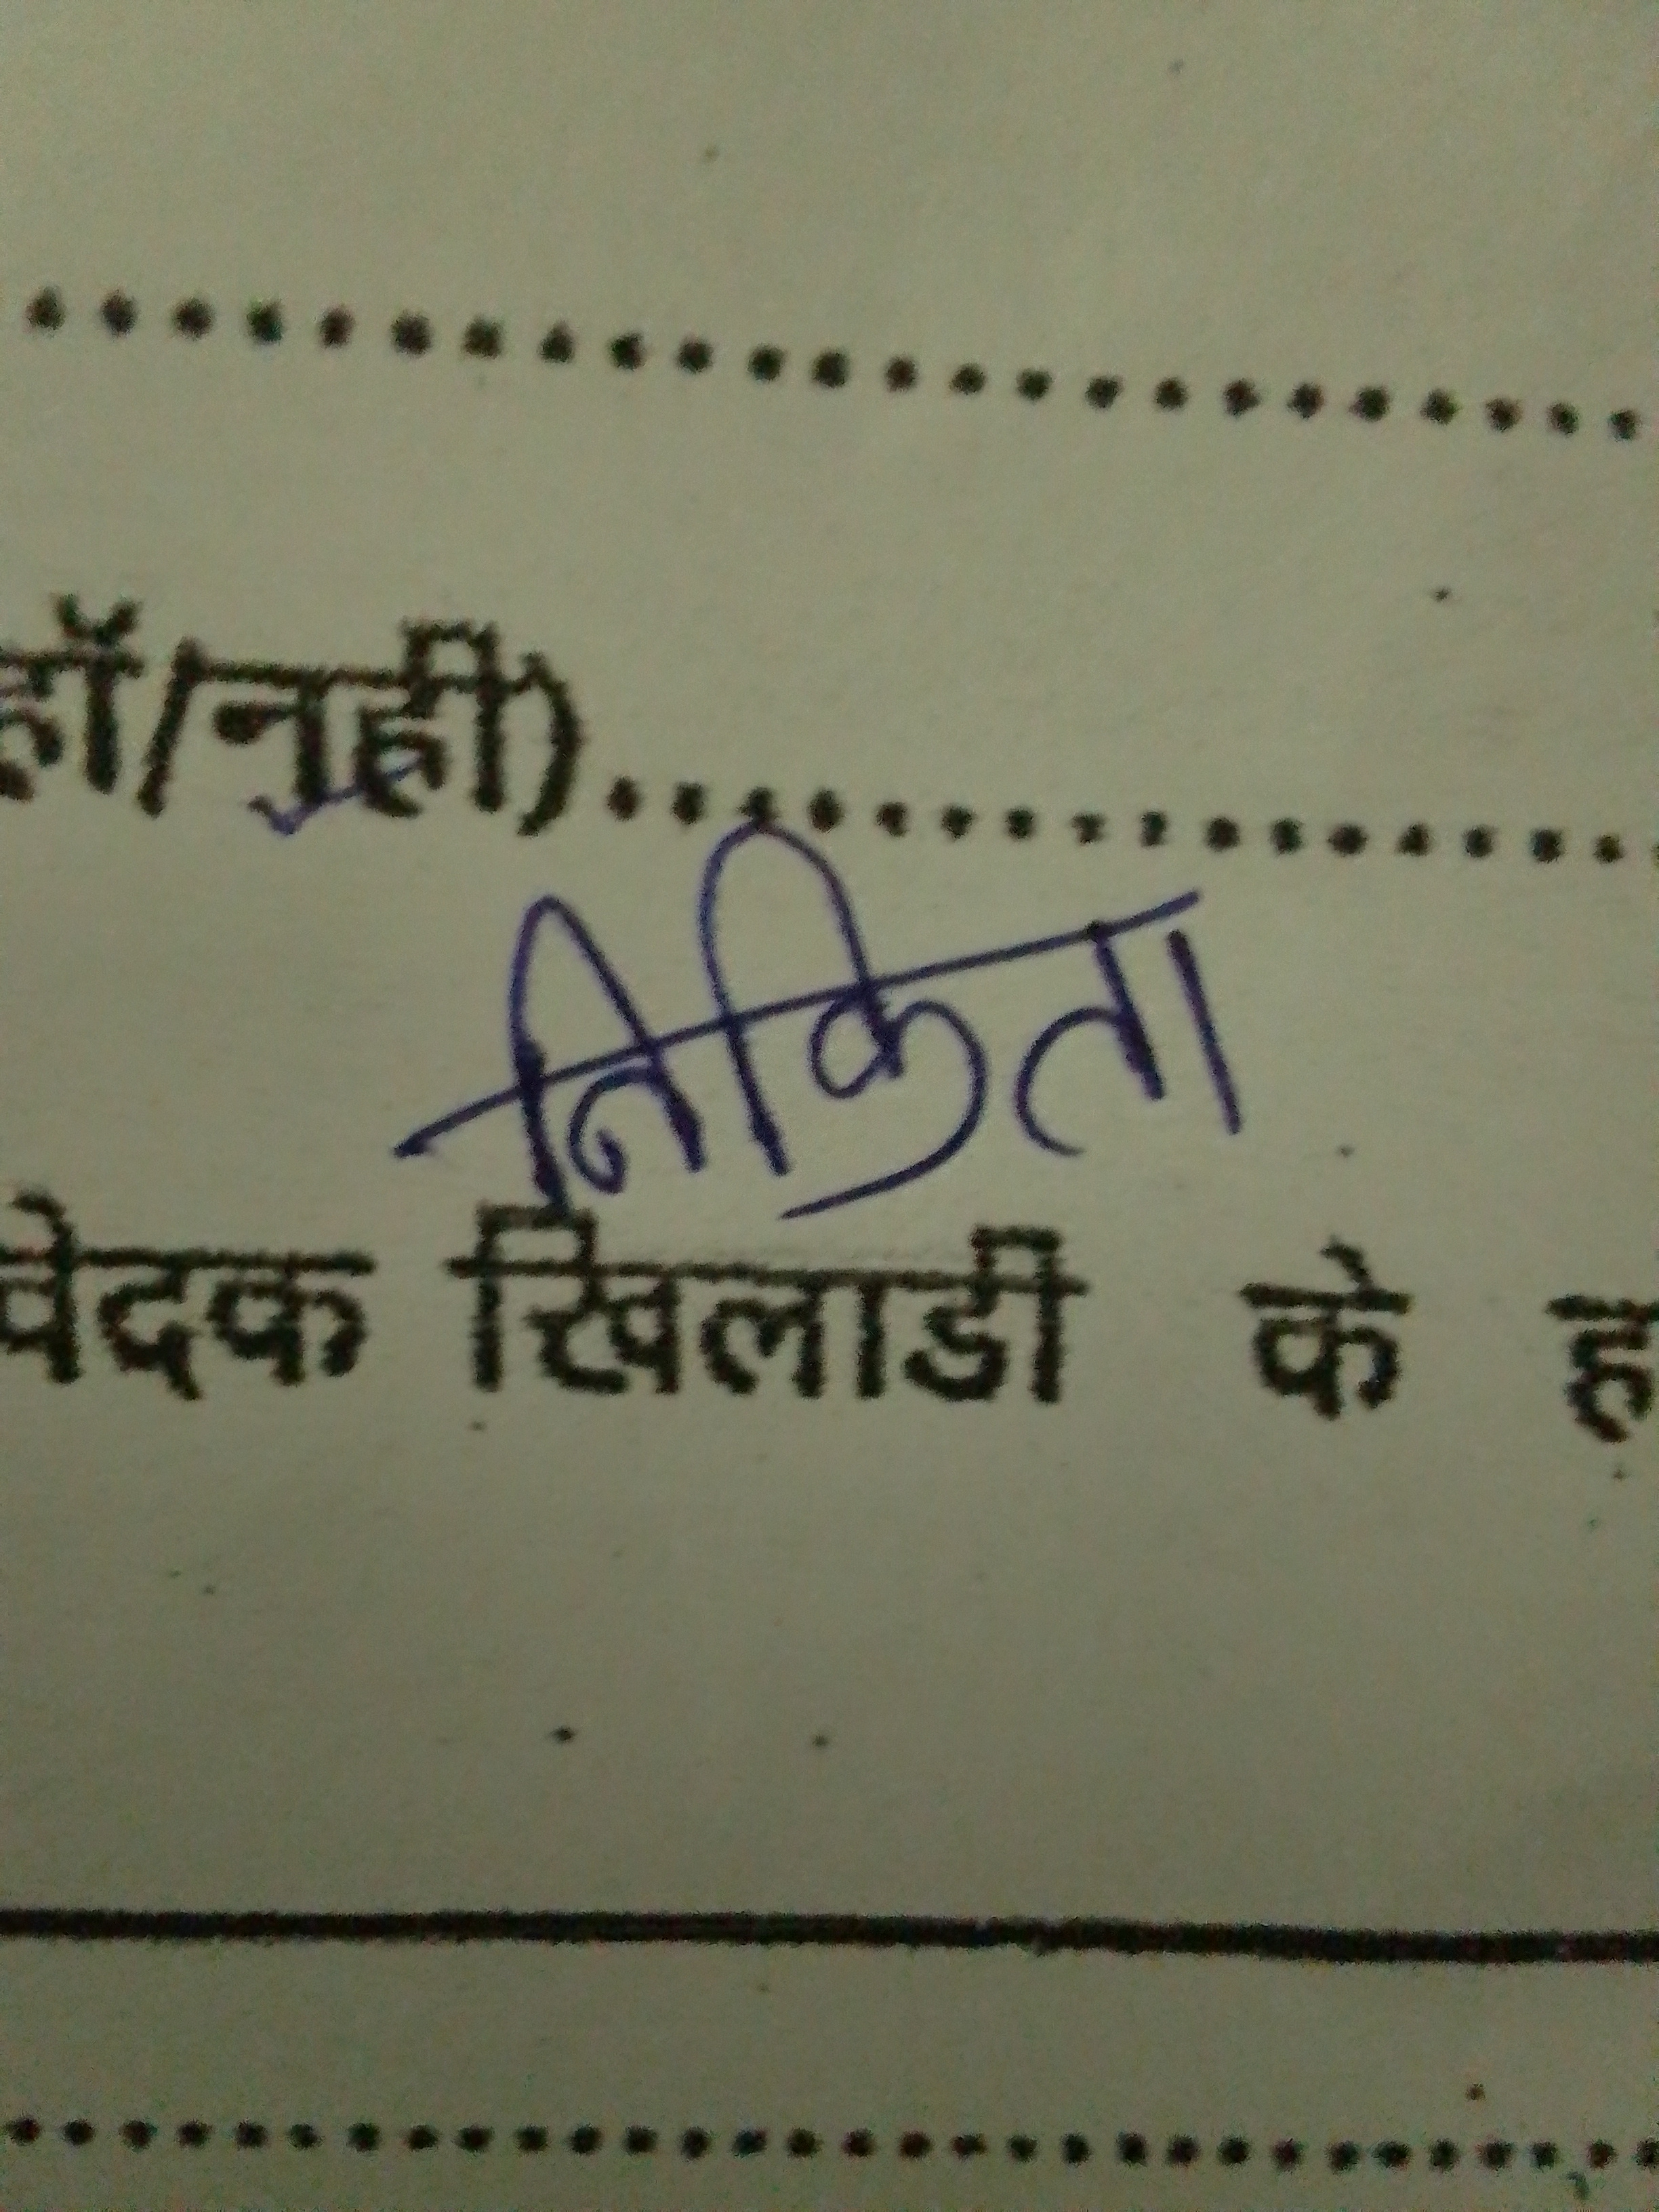 ..........................
हॉ/नही)................
निकिता
वेदक खिलाडी के ह
..............................